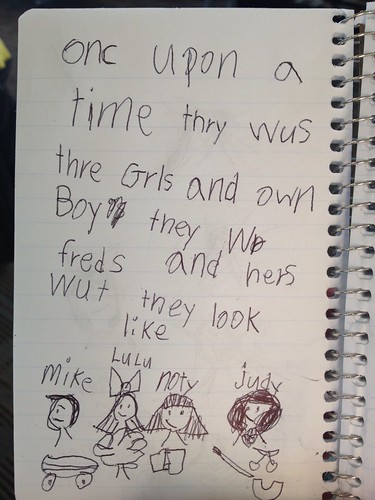 onc upon a
time thry wus
thre Grls and own
Boy they
freds and hers
wut they look
like
mike LuLu noty judy